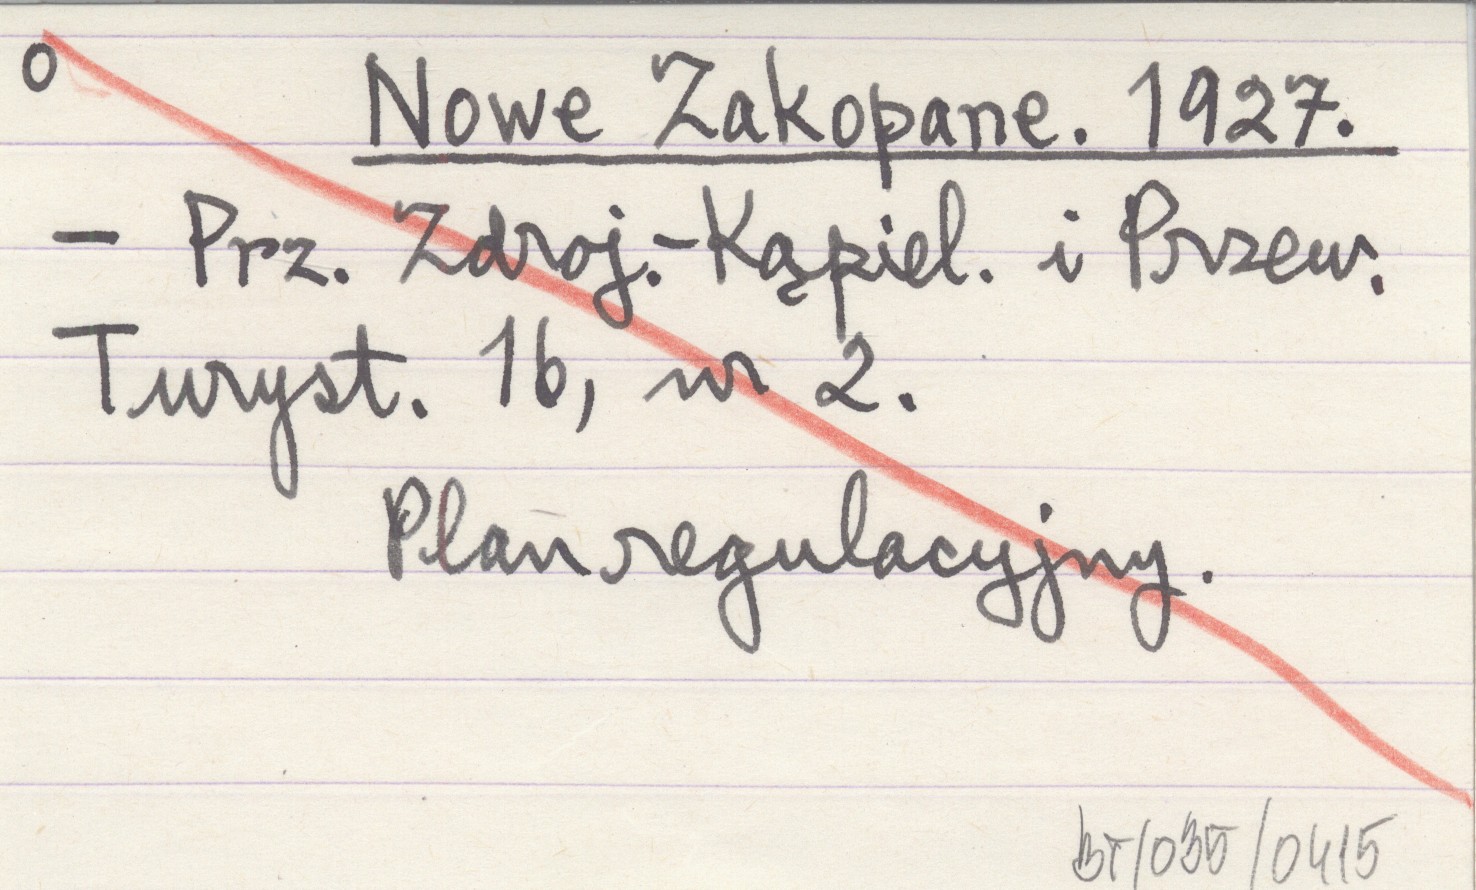 o Nowe Zakopane. 1927.
– Prz. Zdroj.-Kąpiel. i Przew.
Turyst. 16, nr 2.
Plan regulacyjny.
BT/035/0415